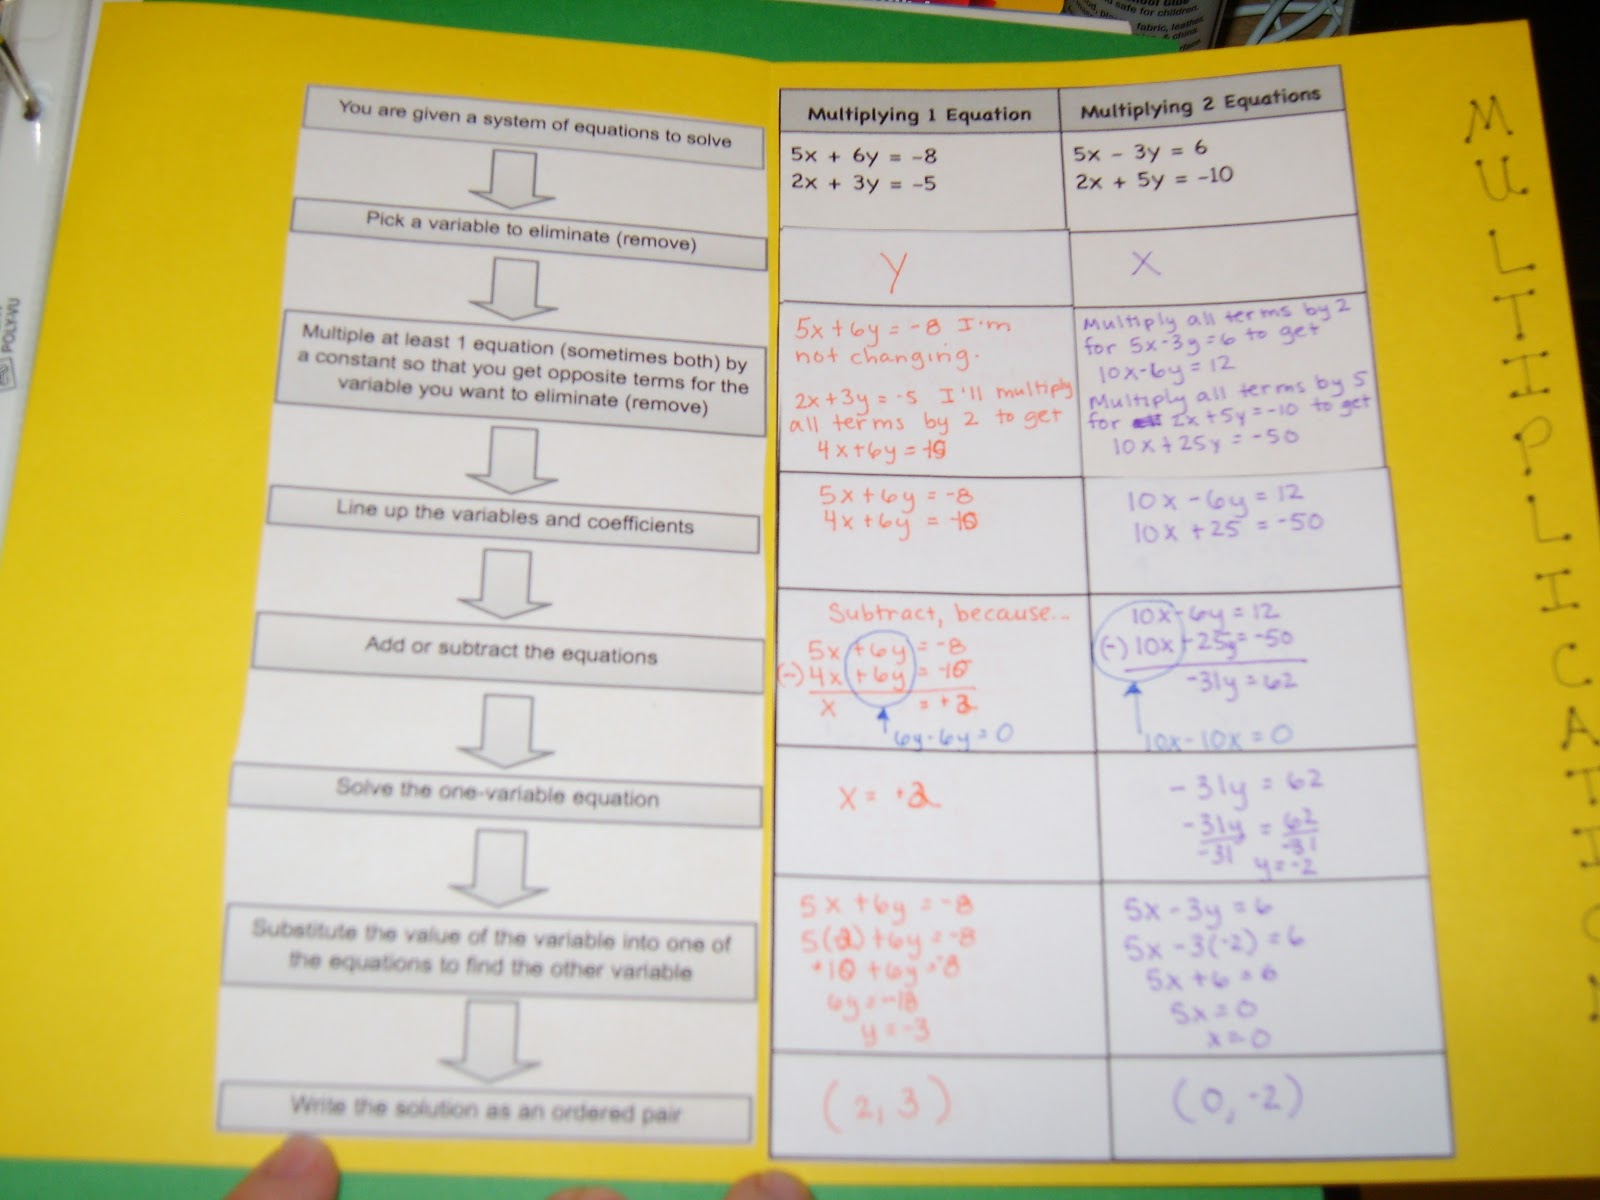 safe for children.
fabric, leather,
& china.
POLY-VU
You are given a system of equations to solve
Pick a variable to eliminate (remove)
Multiple at least 1 equation (sometimes both) by
a constant so that you get opposite terms for the
variable you want to eliminate (remove)
Line up the variables and coefficients
Add or subtract the equations
Solve the one-variable equation
Substitute the value of the variable into one of
the equations to find the other variable
Write the solution as an ordered pair
Multiplying 1 Equation
5x + 6y = -8
2x + 3y = -5
y
5x + 6y = -8 I'm
not changing.
2x + 3y = -5 I'll multiply
all terms by 2 to get
4x + 6y = -10
5x + 6y = -8
4x + 6y = -10
Subtract, because...
5x + 6y = -8
(-) 4x + 6y = -10
x = +2
6y - 6y = 0
x = +2
5x + 6y = -8
5(2) + 6y = -8
+10 + 6y = -8
6y = -18
y = -3
(2, 3)
Multiplying 2 Equations
5x - 3y = 6
2x + 5y = -10
x
Multiply all terms by 2
for 5x - 3y = 6 to get
10x - 6y = 12
Multiply all terms by 5
for 2x + 5y = -10 to get
10x + 25y = -50
10x - 6y = 12
10x + 25 = -50
10x - 6y = 12
(-) 10x + 25y = -50
-31y = 62
10x - 10x = 0
-31y = 62
-31y = 62
-31 -31
y = -2
5x - 3y = 6
5x - 3(-2) = 6
5x + 6 = 6
5x = 0
x = 0
(0, -2)
MULTIPLICATION